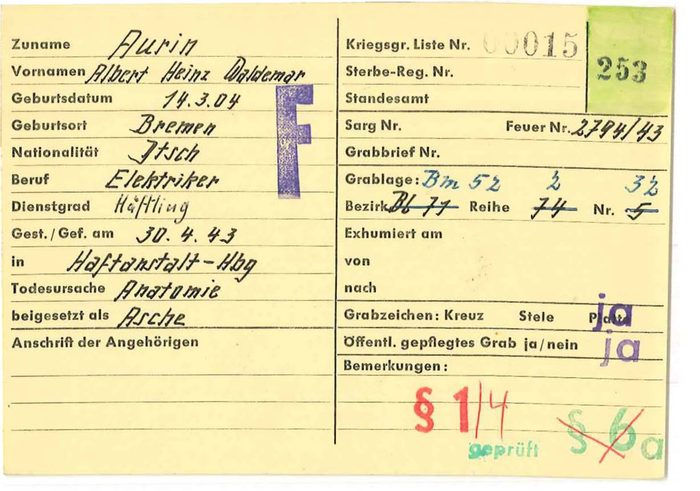 Zuname Aurin
Vornamen Albert Heinz Waldemar
Geburtsdatum 14.3.04
Geburtsort Bremen
Nationalität Dtsch
Beruf Elektriker
Dienstgrad Häftling
Gest./Gef. am 30.4.43
in Haftanstalt-Hbg
Todesursache Anatomie
beigesetzt als Asche
Anschrift der Angehörigen
F
Kriegsgr. Liste Nr. 00015
253
Sterbe-Reg. Nr.
Standesamt
Sarg Nr. Feuer Nr. 2794/43
Grabbrief Nr.
Grablage: Bm 52 2 32
Bezirk Bl 71 Reihe 74 Nr. 5
Exhumiert am
von
nach
Grabzeichen: Kreuz Stele Platte ja
Öffentl. gepflegtes Grab ja/nein ja
Bemerkungen:
§ 1/4
geprüft § 6a